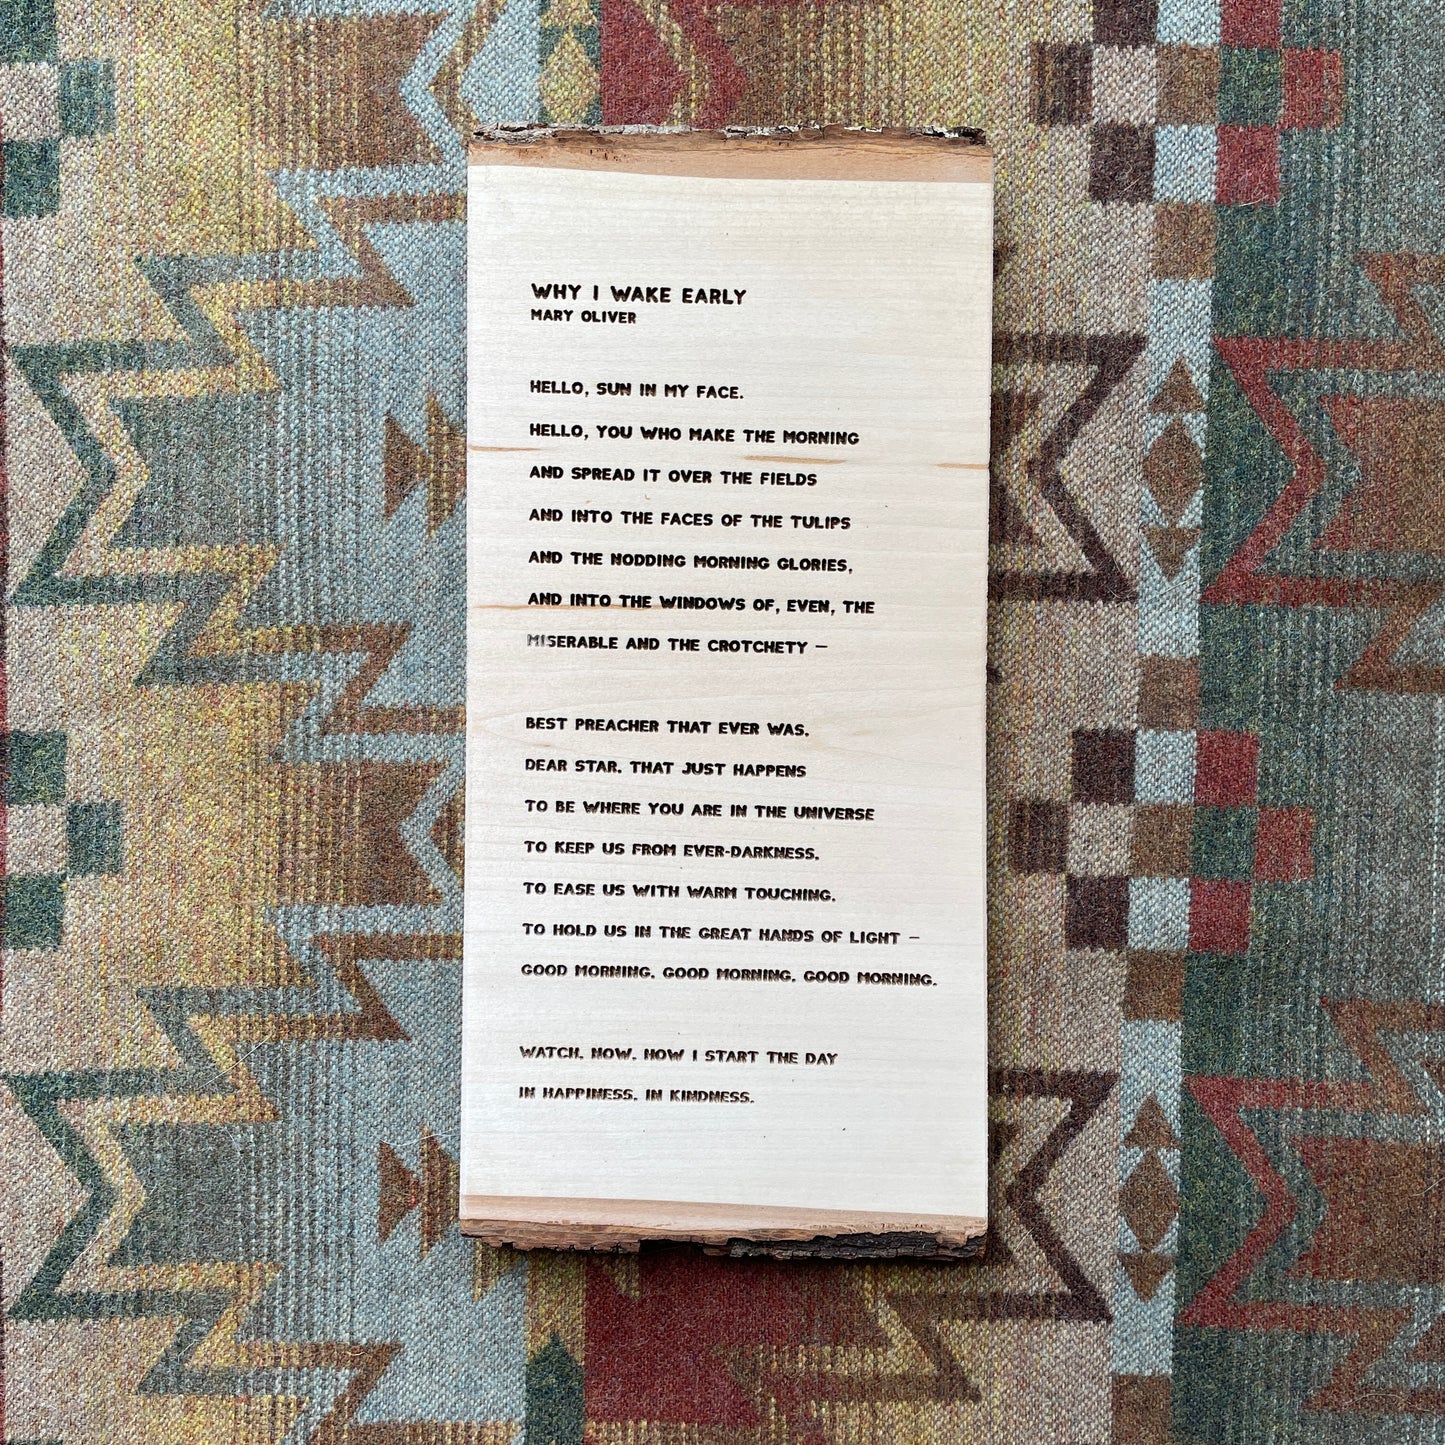 WHY I WAKE EARLY
MARY OLIVER
HELLO, SUN IN MY FACE.
HELLO, YOU WHO MAKE THE MORNING
AND SPREAD IT OVER THE FIELDS
AND INTO THE FACES OF THE TULIPS
AND THE NODDING MORNING GLORIES,
AND INTO THE WINDOWS OF, EVEN, THE
MISERABLE AND THE CROTCHETY –
BEST PREACHER THAT EVER WAS,
DEAR STAR, THAT JUST HAPPENS
TO BE WHERE YOU ARE IN THE UNIVERSE
TO KEEP US FROM EVER-DARKNESS,
TO EASE US WITH WARM TOUCHING,
TO HOLD US IN THE GREAT HANDS OF LIGHT –
GOOD MORNING, GOOD MORNING, GOOD MORNING.
WATCH, NOW, HOW I START THE DAY
IN HAPPINESS, IN KINDNESS.